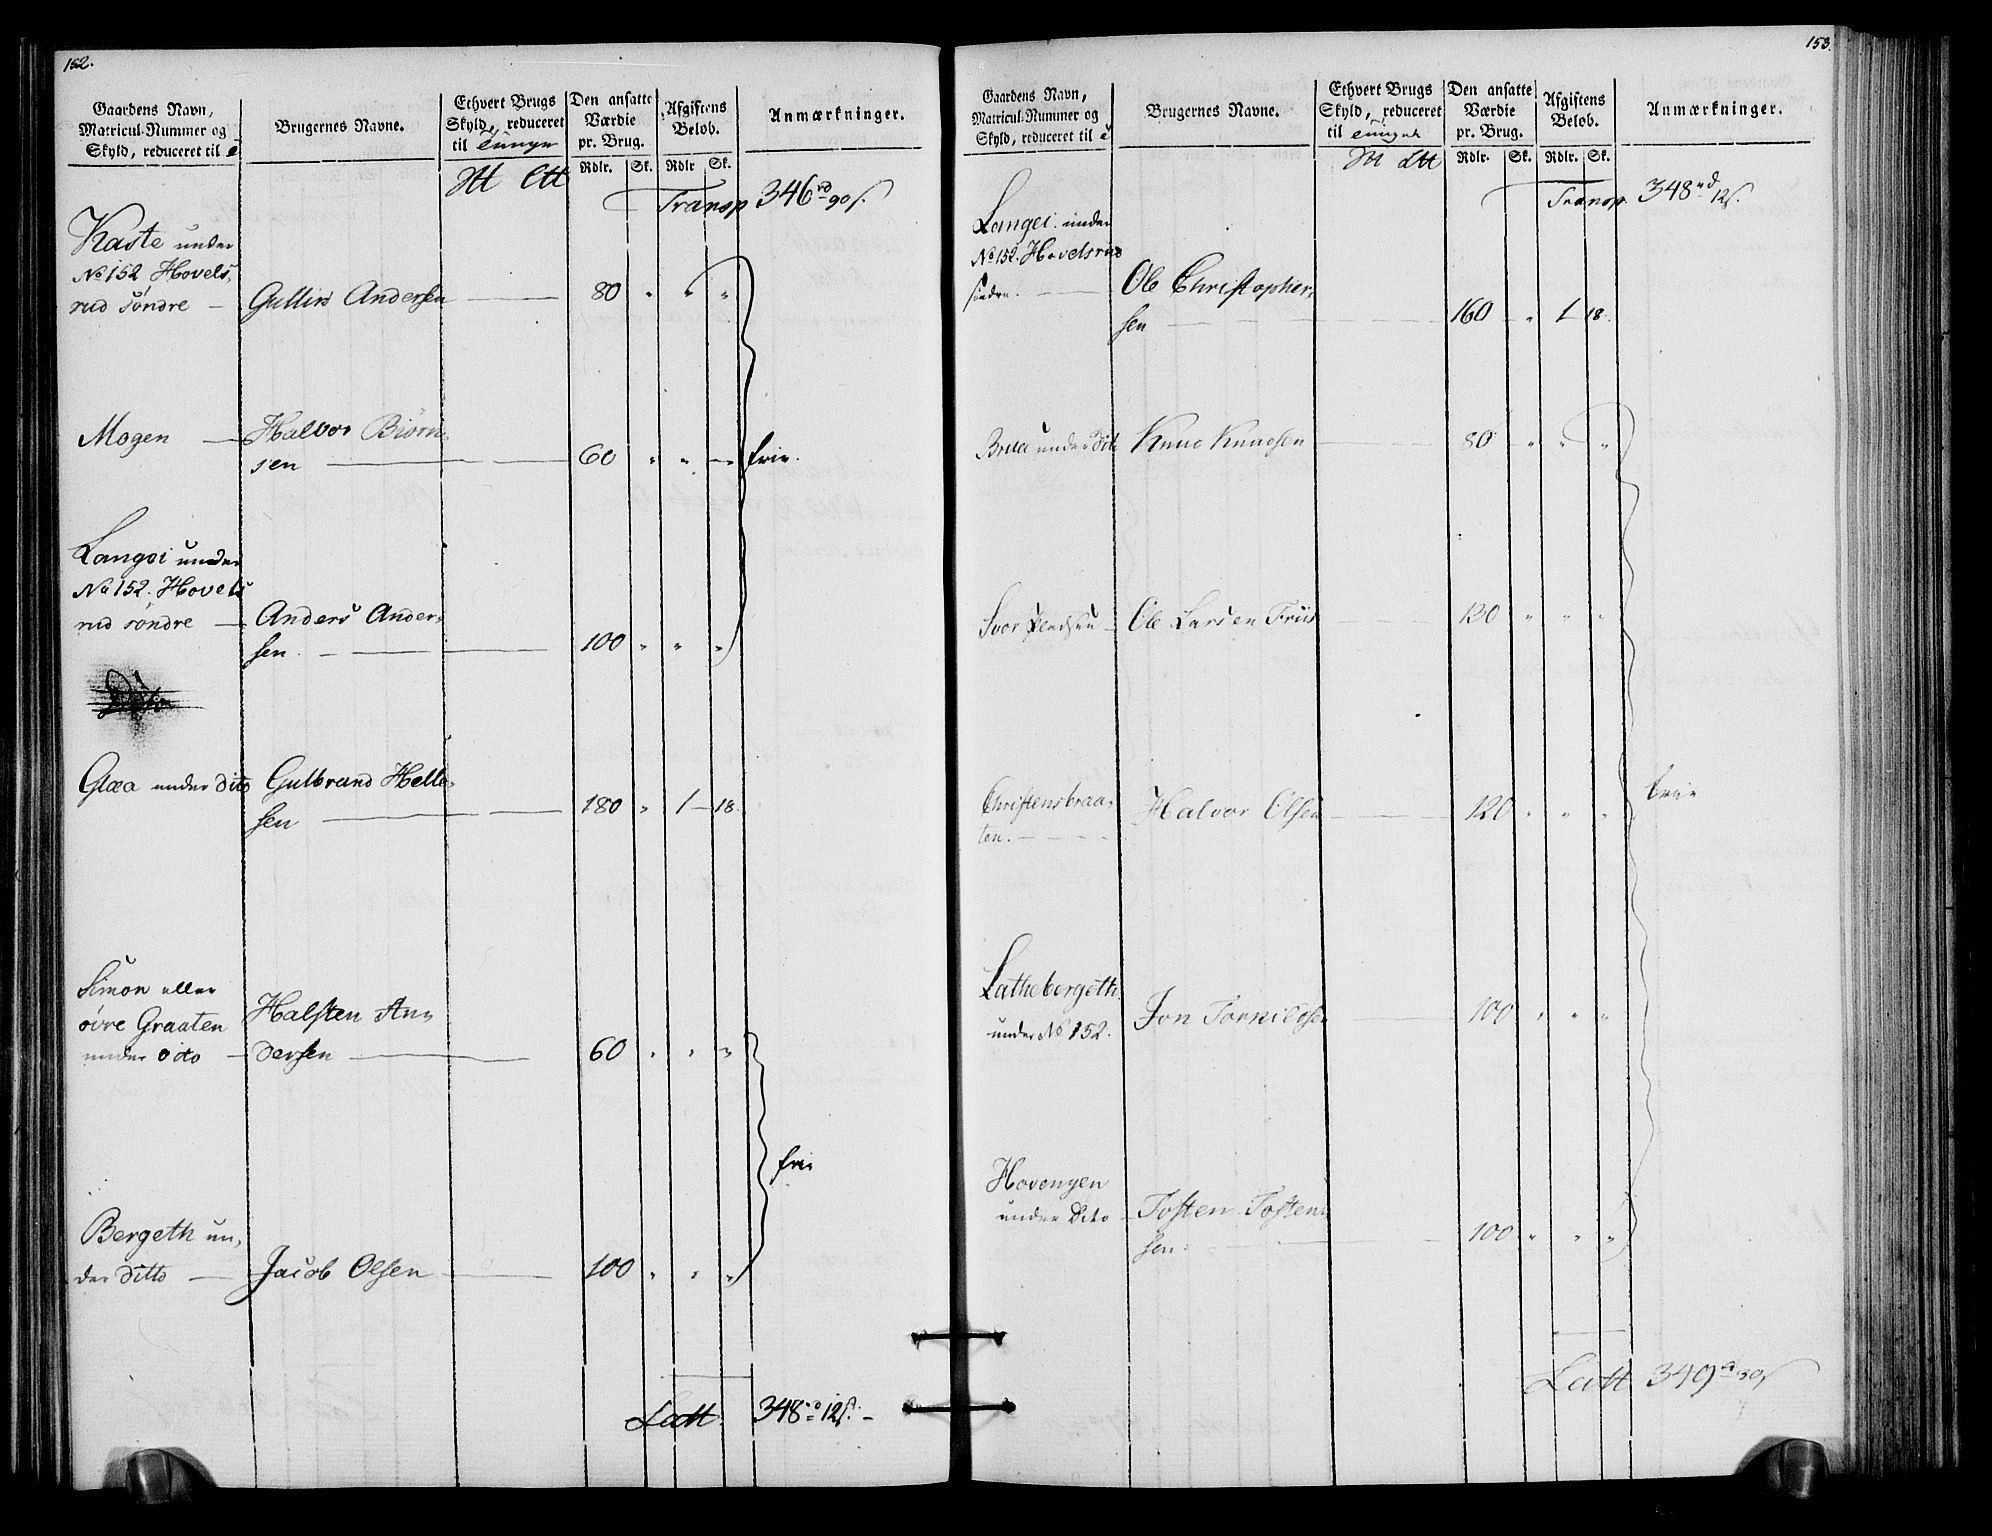 152.
Gaardens Navn,
Matricul-Nummer og
Skyld, reduceret til
Brugernes Navne.
Ethvert Brugs
Skyld, reduceret
til Tunge
Den ansatte
Værdie
pr. Brug.
Afgiftens
Beløb.
Anmærkninger.
Rdlr. Sk. Rdlr Sk.
Transp 346 rd 90 s.
Kaste under
No 152 Hovels,
rud söndre — Gullik Andersen — 80 " " "
Mogen — Halvor Biörn,
sen — 60 " " — frie.
Langöi under
No 152. Hovels
rud söndre — Anders Ander,
sen. — 100 " " "
Glæa under dito Gulbrand Helle,
sen — 180 " 1 — 18.
Simon eller
övre Graaten Halsten An,
under dito — dersen — 60 " " "
frie
Bergeth un,
der ditto — Jacob Olsen — 100 " " "
Latt. 348 rd 12 s. —
153.
Gaardens Navn,
Matricul-Nummer og
Skyld, reduceret til
Brugernes Navne.
Ethvert Brugs
Skyld, reduceret
til Tunge
Den ansatte
Værdie
pr. Brug.
Afgiftens
Beløb.
Anmærkninger.
Rdlr. Sk. Rdlr. Sk.
Transp. 348 rd 12 s.
Langöi under
No 152. Hovelsrud
söndre. — Ole Christopher,
sen — 160 " 1 18.
Brua under Dito Knud Knudsen — 80 " " "
Ole Larsen Friis — 130 " " "
Christensbraa,
ten. — Halvor Olsen — 120 " " " frie
Lathebergeth
under No 152. Jon Torkildsen — 100 " " "
Hovengen
under Dito — Tosten Tosten,
sen. — 100 " " "
Latt 349 rd 30 s